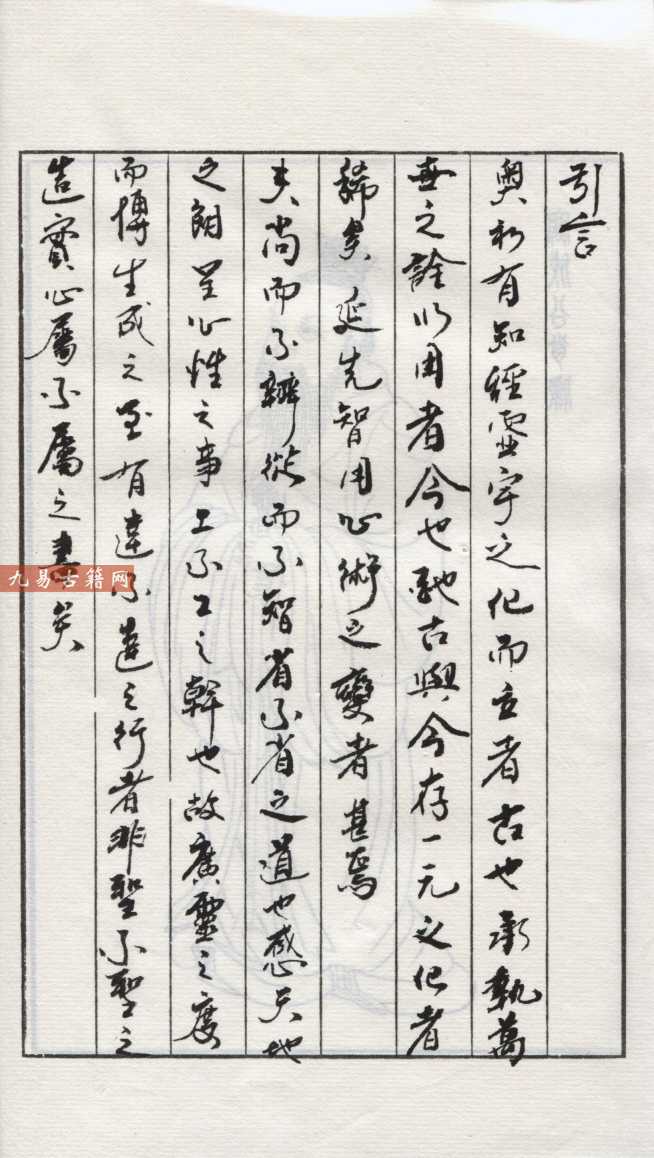 引言
與初有知經靈宇之化而立者古也承執萬
世之詮以用者今也融古與今存一元之化者
稀矣延先智用心術之變者甚焉
夫尚而不辨從而不智省不省之道也感天地
之朗呈心性之事工不工之幹也故廣靈之度
而博生成之至有達不達之行者非聖不聖之
造實心屬不屬之
矣
九易古籍网